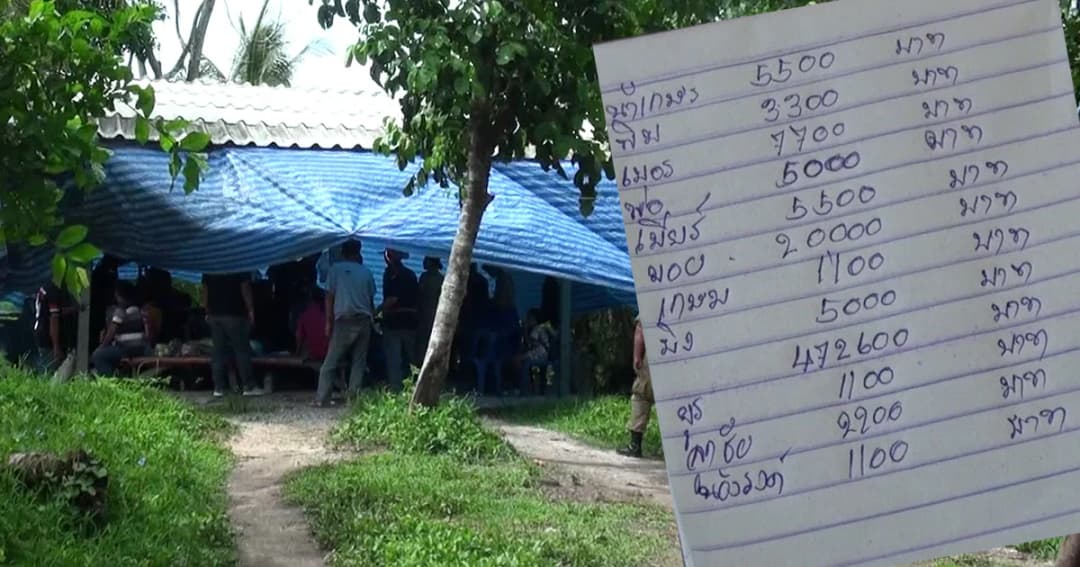 น้าเกษร 5500 บาท
พิม 3300 บาท
เมอร 7700 บาท
พ่อ 5000 บาท
เมียร์ 5500 บาท
มอย 20000 บาท
เกษม 1100 บาท
มิ่ง 5000 บาท
472600 บาท
ยุร 1100 บาท
2200 บาท
1100 บาท